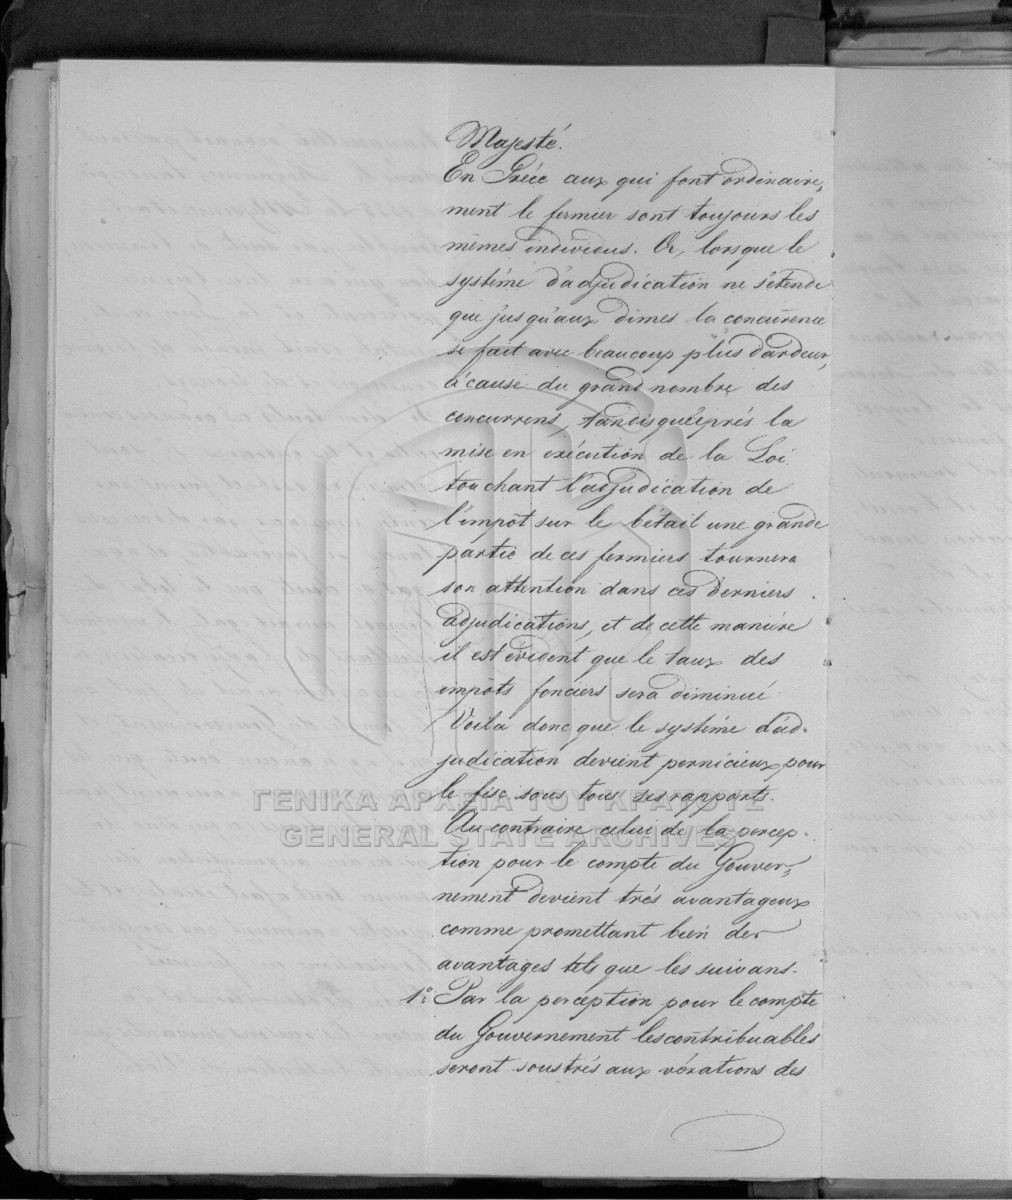 Majesté.
En Gréce aux qui font ordinaire,
ment le fermier sont toujours les
mêmes individus. Or, lorsque le
système d'adjudication ne s'étende
que jusqu'aux dimes la concurence
se fait avec beaucoup plus d'ardeur,
à cause du grand nombre des
concurrens, tandis qu'éprés la
mise en exécution de la Loi
touchant l'adjudication de
l'impôt sur le bétail une grande
partie de ces fermiers tournera
son attention dans ces derniers
adjudications, et de cette manière
il est évident que le taux des
impôts fonciers sera diminué
Voilà donc que le système d'ad-
judication devient pernicieux pour
le fisc sous tous ses rapports.
ΓΕΝΙΚΑ ΑΡΧΕΙΑ ΤΟΥ ΚΡΑΤΟΥΣ
Au contraire celui de la percep-
GENERAL STATE ARCHIVES
tion pour le compte du Gouver-
nement devient trés avantageux
comme promettant bien des
avantages tels que les suivans.
1º Par la perception pour le compte
du Gouvernement les contribuables
seront soustrés aux véxations des